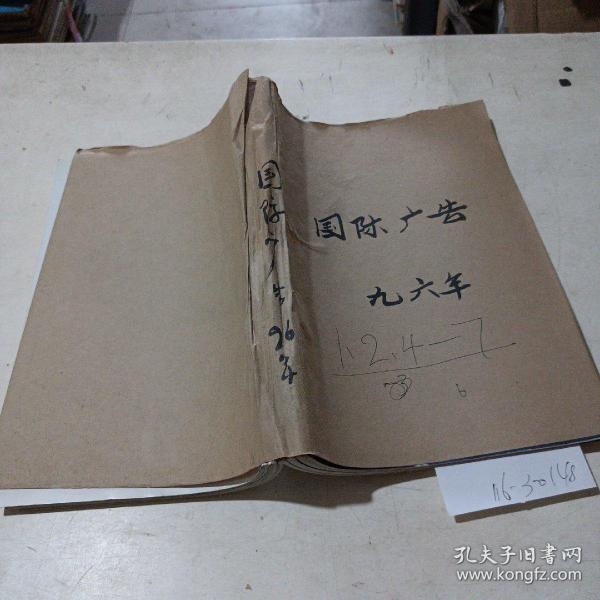 国际广告96年
国际广告
九六年
1、2、4—7
6
116-30148
孔夫子旧书网
www.kongfz.com